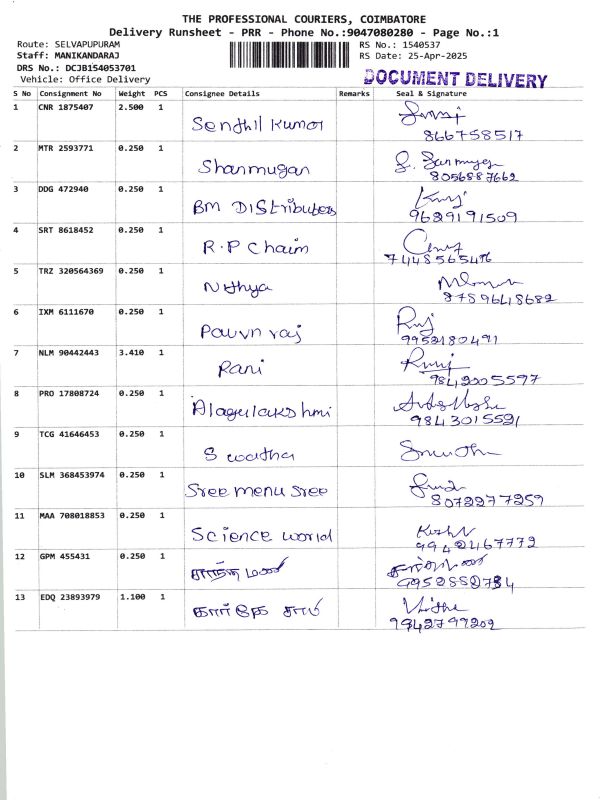 THE PROFESSIONAL COURIERS, COIMBATORE
Delivery Runsheet - PRR - Phone No.:9047080280 - Page No.:1
Route: SELVAPUPURAM RS No.: 1540537
Staff: MANIKANDARAJ RS Date: 25-Apr-2025
DRS No.: DCJB154053701
Vehicle: Office Delivery DOCUMENT DELIVERY
S No Consignment No Weight PCS Consignee Details Remarks Seal & Signature
1 CNR 1875407 2.500 1
Senthil Kumar
866758517
2 MTR 2593771 0.250 1
Shanmugan
8056887662
3 DDG 472940 0.250 1
BM Distributers
9629191509
4 SRT 8618452 0.250 1
R.P Chaim
7448565476
5 TRZ 320564369 0.250 1
Nithya
8789648682
6 IXM 6111670 0.250 1
Pavvn raj
9952180491
7 NLM 90442443 3.410 1
Rani
9842005597
8 PRO 17808724 0.250 1
Alagulakshmi
9843015521
9 TCG 41646453 0.250 1
Swatha
10 SLM 368453974 0.250 1
Sree menu sree
8072277259
11 MAA 708018853 0.250 1
Science world
9942467772
12 GPM 455431 0.250 1
13 EDQ 23893979 1.100 1
9842799202